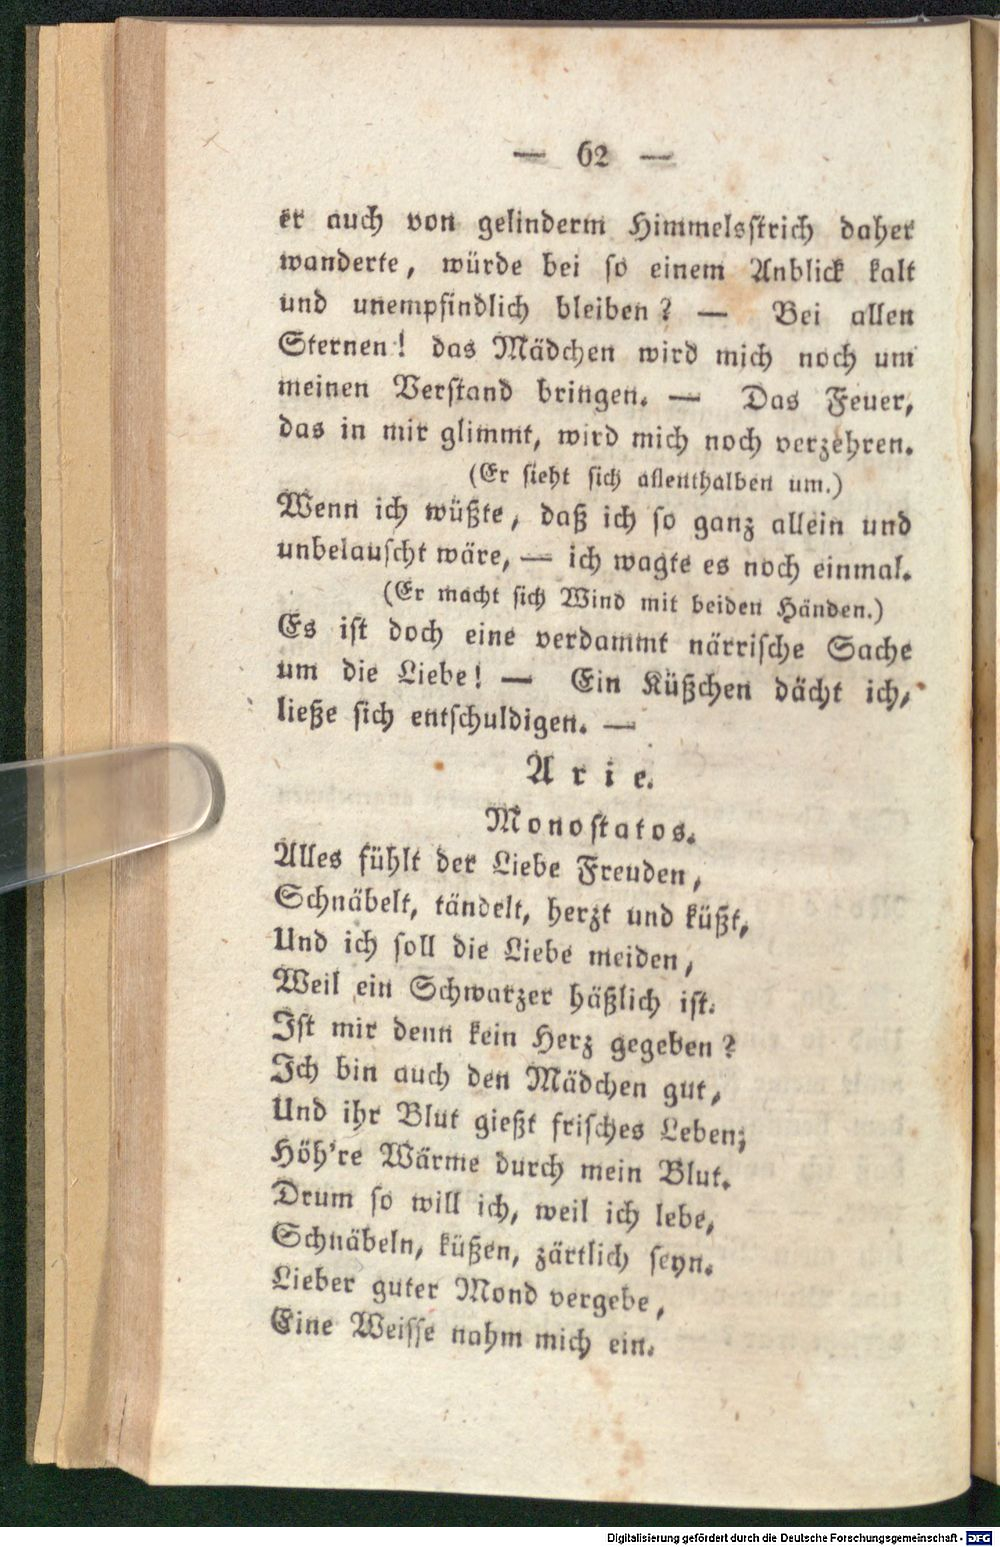 — 62 —
er auch von gelinderm Himmelsstrich daher
wanderte, würde bei so einem Anblick kalt
und unempfindlich bleiben? — Bei allen
Sternen! das Mädchen wird mich noch um
meinen Verstand bringen. — Das Feuer,
das in mir glimmt, wird mich noch verzehren.
(Er sieht sich allenthalben um.)
Wenn ich wüßte, daß ich so ganz allein und
unbelauscht wäre, — ich wagte es noch einmal.
(Er macht sich Wind mit beiden Händen.)
Es ist doch eine verdammt närrische Sache
um die Liebe! — Ein Küßchen dächt ich,
ließe sich entschuldigen. —
Arie.
Monostatos.
Alles fühlt der Liebe Freuden,
Schnäbelt, tändelt, herzt und küßt,
Und ich soll die Liebe meiden,
Weil ein Schwarzer häßlich ist.
Ist mir denn kein Herz gegeben?
Ich bin auch den Mädchen gut,
Und ihr Blut gießt frisches Leben;
Höh're Wärme durch mein Blut.
Drum so will ich, weil ich lebe,
Schnäbeln, küßen, zärtlich seyn.
Lieber guter Mond vergebe,
Eine Weisse nahm mich ein.
Digitalisierung gefördert durch die Deutsche Forschungsgemeinschaft - DFG